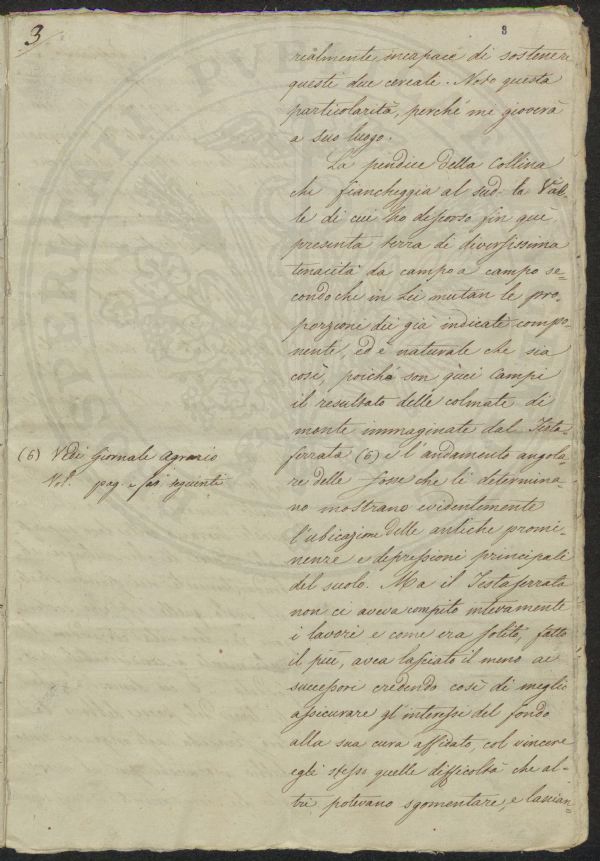 3
8
rialmente incapace di sostenere
questi due cereale. Noto questa
particolarità, perché mi gioverà
a suo luogo.
La pendice della Collina
che fiancheggia al sud la Val-
le di cui ho disporso fin quì
presenta terra di diversissima
tenacità da campo a campo se-
condo che in Lei mutan le pro-
porzione dei già indicate compo-
nente, ed è naturale che sia
così, poiché son quei Campi
il resultato delle colmate di
monte immaginate dal Testa-
ferrata (6) e l'andamento angola-
re delle fosse che li determina-
no mostrano evidentemente
l'ubicazione delle antiche promi-
nenze e depressioni principali
del suolo. Ma il Testaferrata
non ci aveva compito interamente
i lavori e come era solito, fatto
il più, avea lasciato il meno ai
successori credendo così di meglio
assicurare gl'interessi del fondo
alla sua cura affidato, col vincere
egli stesso quelle difficoltà che al-
tri potevano sgomentare, e lascian-
(6) Vedi Giornale Agrario
Vol. pag. e seguenti